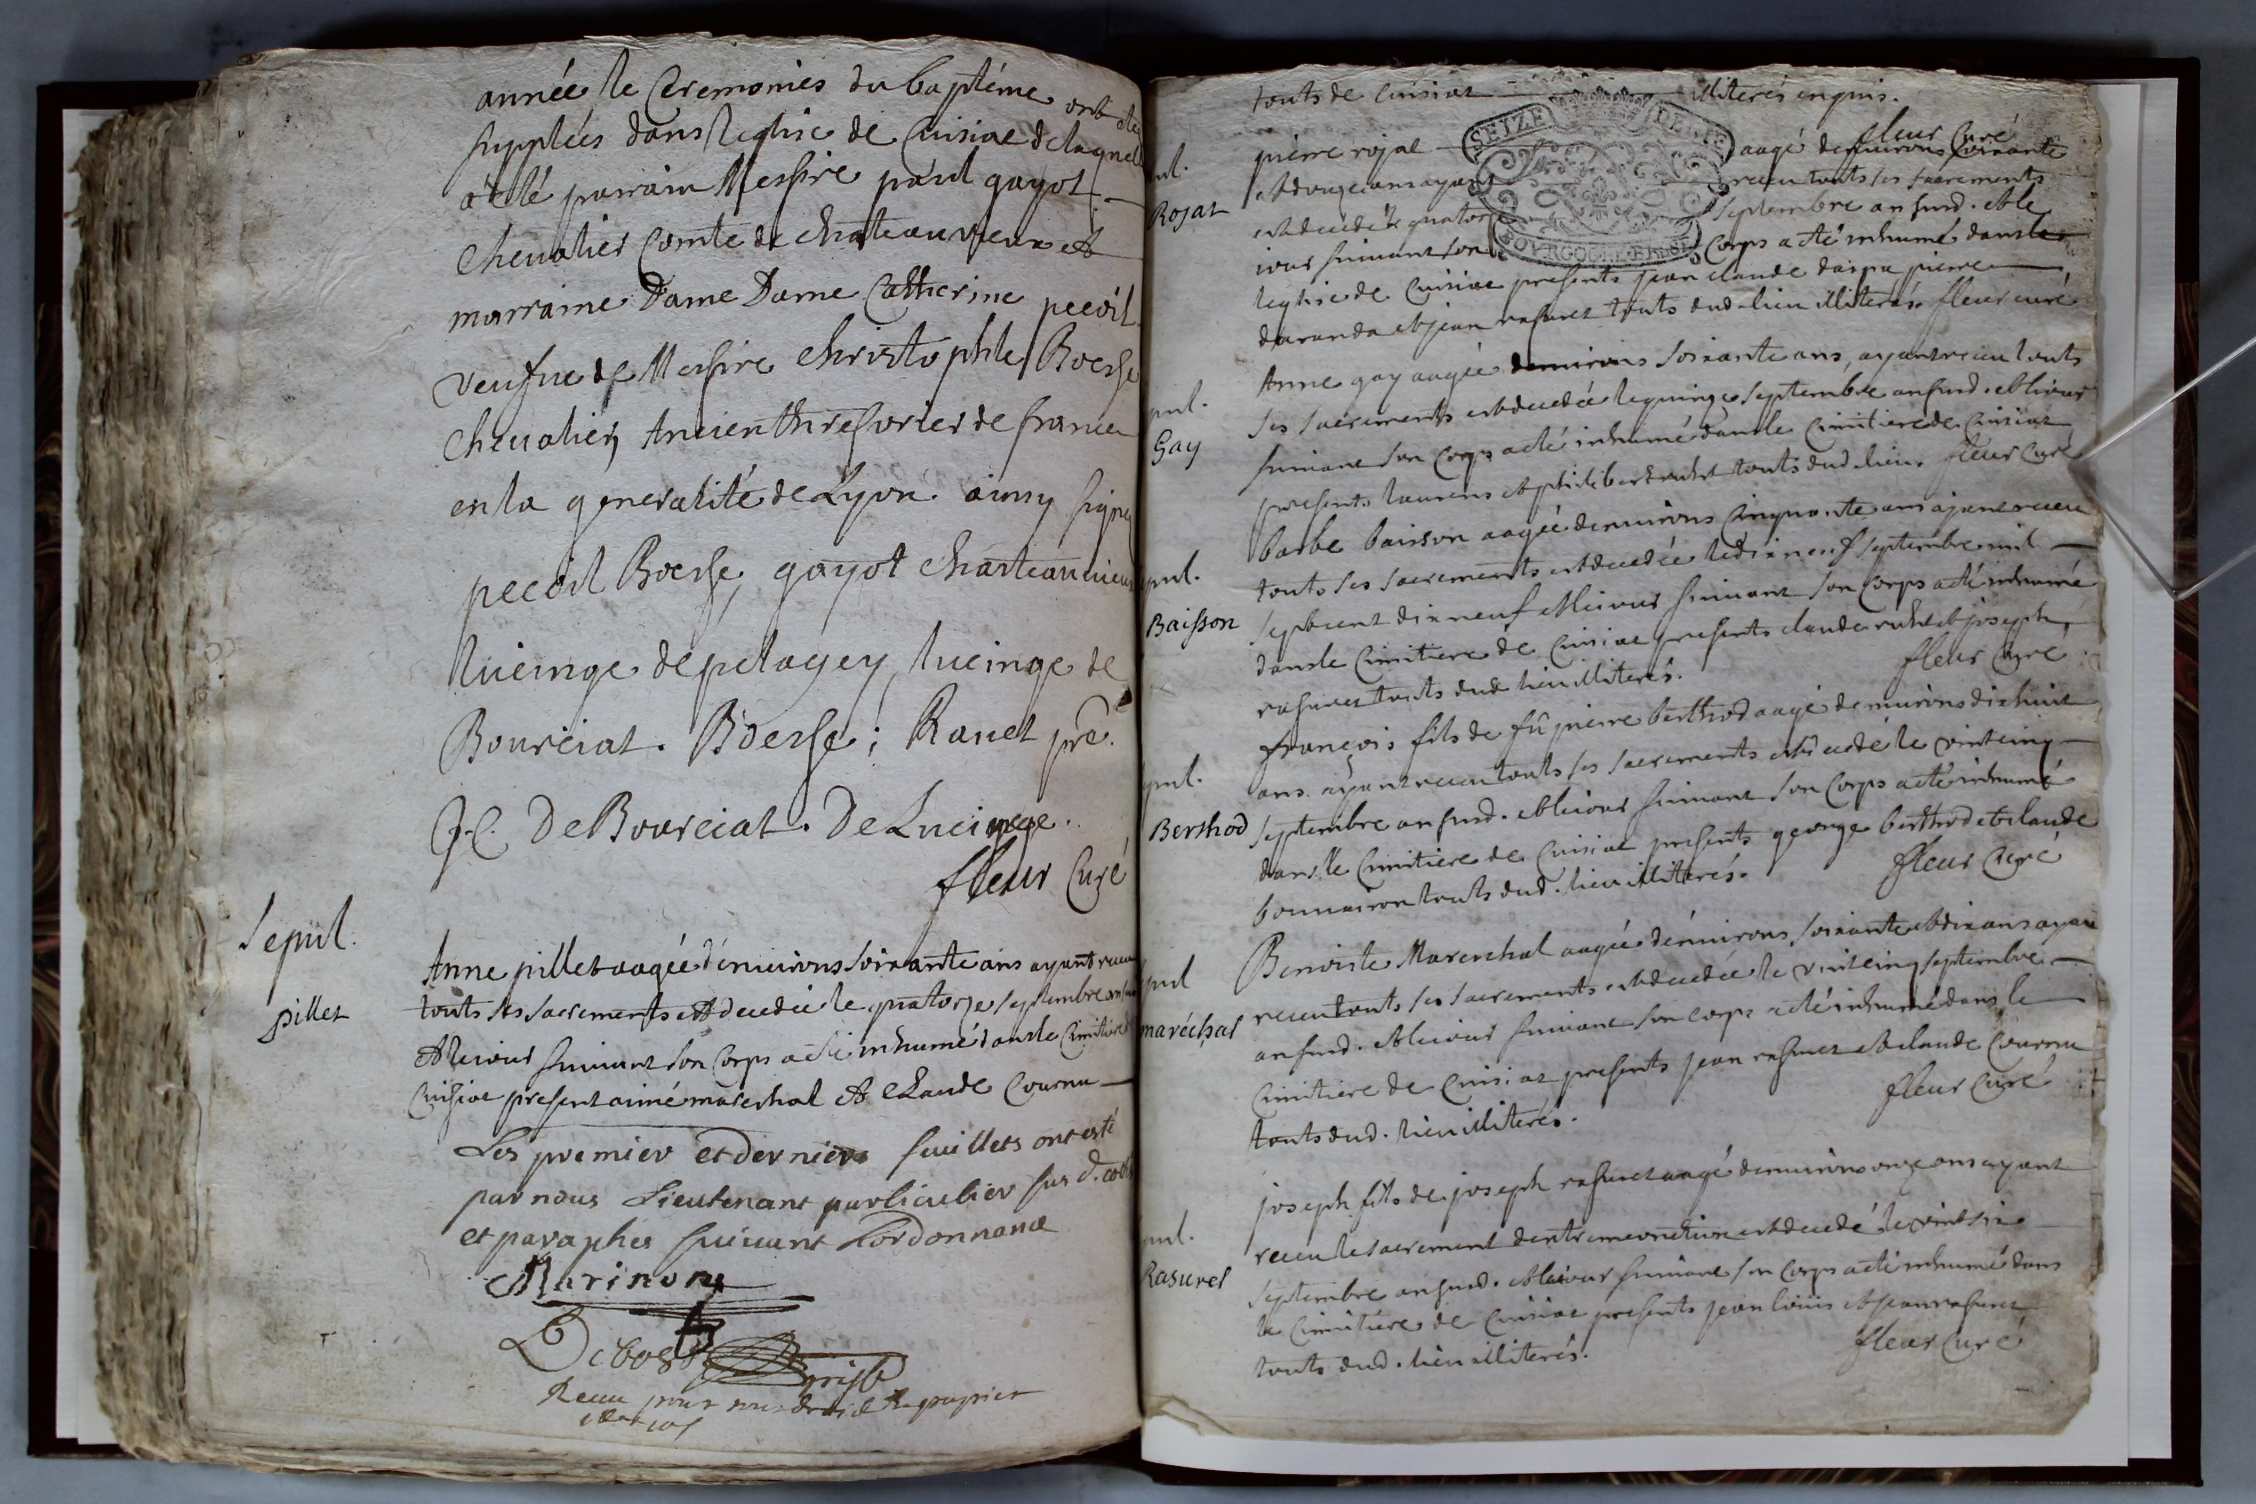 année le Ceremonies du baptéme ont ete
supplées dans leglise de Cuisiat de laquelle
a esté parrain Messire paul gayot
chevalier Comte de chateauvieux et
marraine Dame Dame Catherine pecoil
veufue de Messire christophle Boesse
chevalier Ancien thresorier de france
en la generalité de Lyon. ainsy signé
pecoil Boesse, gayot chasteauvieux
lucinge de pelagey, lucinge de
Boureiat. Boesse; Ravet pre.
J.C. De Boureiat. De Lucinge.
fleur Curé
Sepul.
pillet
Anne pillet aagée denuirons soixante ans ayant receu
touts ses sacrements est decedée le quatorze septembre an susd
et le iour suiuant son Corps a esté inhumé dans le Cimitiere de
Cuisiat present aimé mareschal et Claude Cournu
Les premier et dernier feuillets ont esté
par nous Lieutenant particulier sus d. cotté
et paraphés suiuant Lordonnance
Marinon
Debost
Receu pour nos droid de papier
touts de Cuisiat illiterés enquis.
fleur Curé
pul.
Rojat
pierre rojat aagé denuirons soixante
et douze ans ayant receu touts ses sacrements
est decedé le quatorze septembre an susd. et le
iour suiuant son Corps a esté inhumé dans le
leglise de Cuisiat presents jean claude daspa pierre
daranda et jean rasurel touts dud. lieu illiterés. fleur curé
SEIZE DENIE
BOURGOGNE BRESSE
pul.
Gay
Anne gay aagée denuirons soixante ans, ayant receu touts
ses sacrements est decedée le quinze septembre an susd. et le iour
suiuant son Corps a esté inhumé dans le Cimitiere de Cuisiat
presents laurens et philibert ruhet touts dud. lieu. fleur Curé
pul.
Baisson
barbe baisson aagée denuirons Cinquante ans ayant receu
touts ses sacrements est decedée le dixneuf septembre mil
sept cent dixneuf et le iour suiuant son Corps a esté inhumé
dans le Cimitiere de Cuisiat presents claude ruhet et joseph
rasurel touts dud. lieu illiterés. fleur Curé
pul.
Berthod
françois fils de fû pierre berthod aagé denuirons dixhuit
ans. ayant receu touts ses sacrements est decedé le vintcinq
septembre an susd. et le iour suiuant son Corps a esté inhumé
dans le Cimitiere de Cuisiat presents george berthod et claude
bonnairon touts dud. lieu illiterés. fleur Curé
pul
maréchal
Benoiste Mareschal aagée denuirons soixante et dix ans ayant
receu touts ses sacrements est decedée le vintcinq septembre
an susd. et le iour suiuant son Corps a esté inhumé dans le
Cimitiere de Cuisiat presents jean rasurel et claude Cournu
touts dud. lieu illiterés. fleur Curé
pul.
Rasurel
joseph fils de joseph rasurel aagé denuirons onze ans ayant
receu le sacrement dextreme onction est decedé le vintsix
septembre an susd. et le iour suiuant son Corps a esté inhumé dans
le Cimitiere de Cuisiat presents jean louis et jean rasurel
touts dud. lieu illiterés. fleur Curé